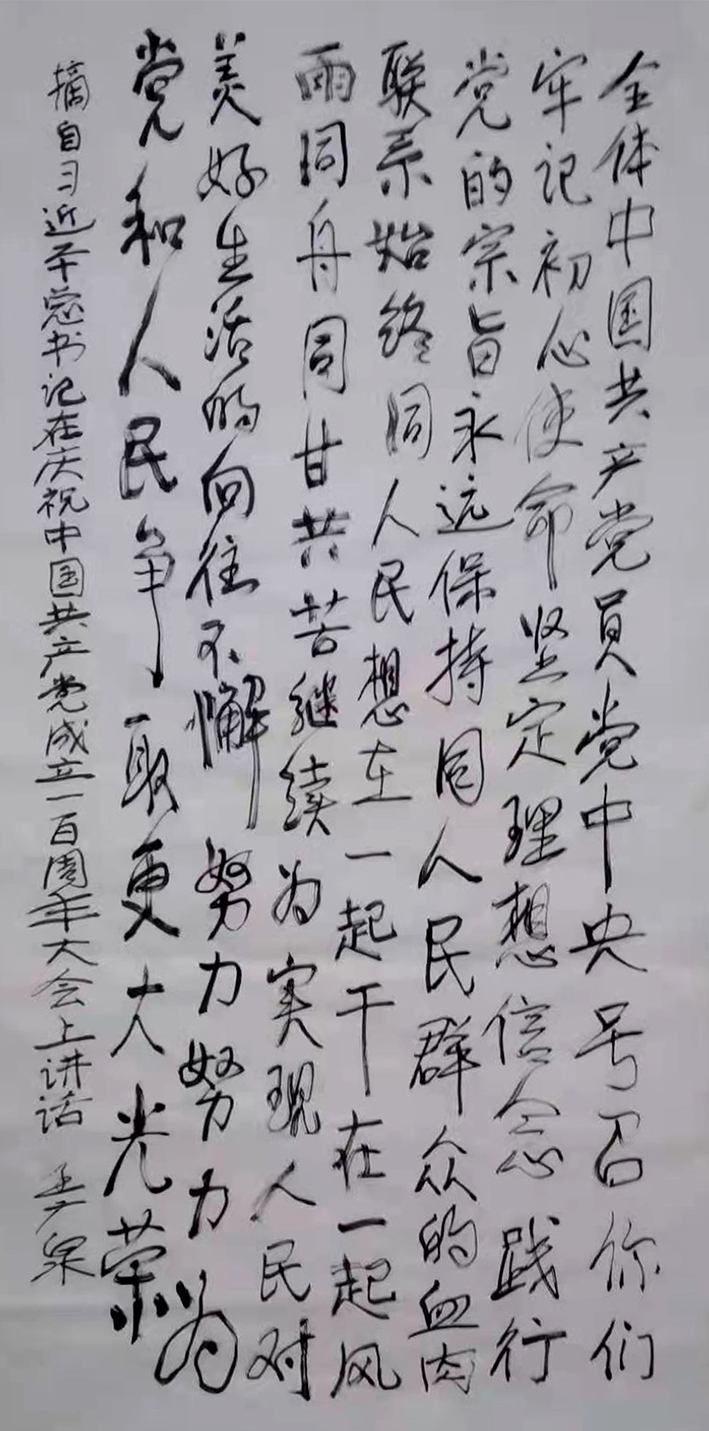 全体中国共产党员党中央号召你们
牢记初心使命坚定理想信念践行
党的宗旨永远保持同人民群众的血肉
联系始终同人民想在一起干在一起风
雨同舟同甘共苦继续为实现人民对
美好生活的向往不懈努力努力为
党和人民争取更大光荣
摘自习近平总书记在庆祝中国共产党成立一百周年大会上讲话